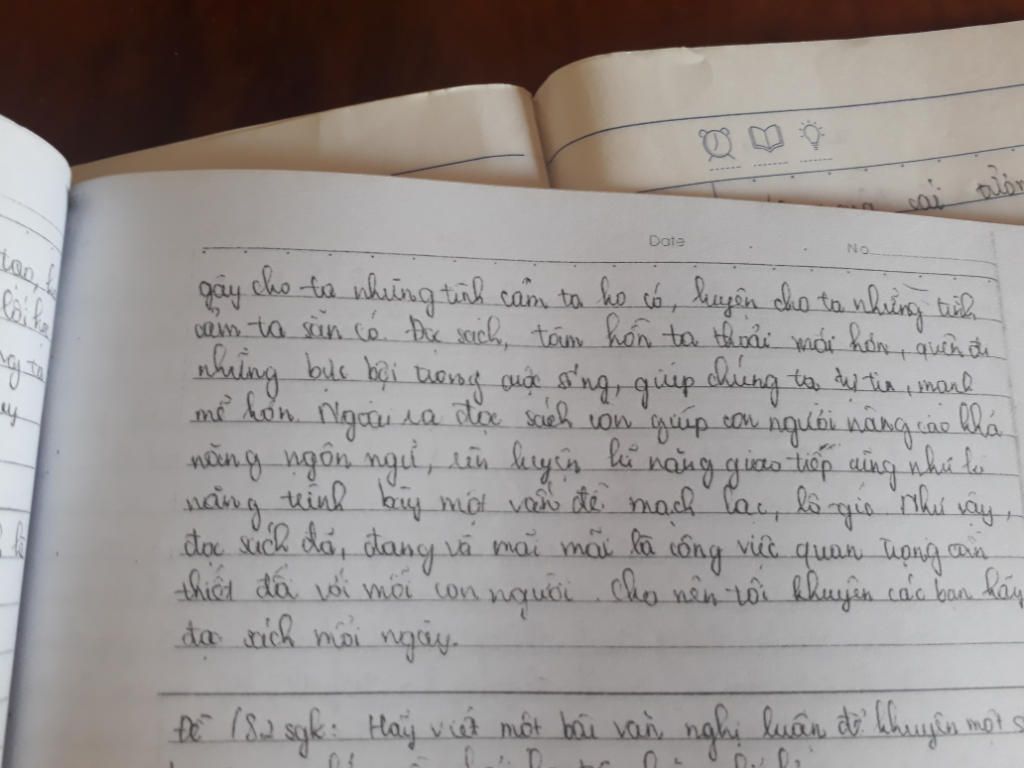 cái
Date
No
gây cho ta những tình cảm ta ko có, luyện cho ta những tình
cảm ta sẵn có. Đọc sách, tâm hồn ta thoải mái hơn, quên đi
những bực bội trong cuộc sống, giúp chúng ta tự tin, mạnh
mẽ hơn. Ngoài ra đọc sách còn giúp con người nâng cao khả
năng ngôn ngữ, rèn luyện kĩ năng giao tiếp cũng như kĩ
năng trình bày một vấn đề mạch lạc, lô-gíc. Như vậy,
đọc sách đã, đang và mãi mãi là công việc quan trọng cần
thiết đối với mỗi con người. Cho nên tôi khuyên các bạn hãy
đọc sách mỗi ngày.
Đề 182 sgk: Hãy viết một bài văn nghị luận để khuyên một s